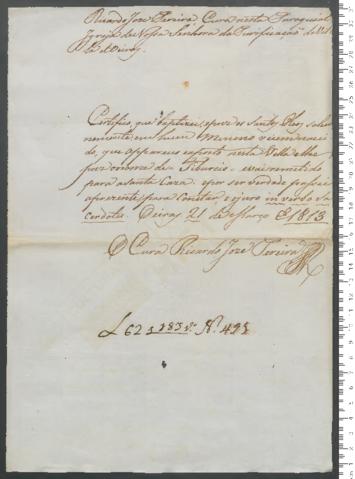 Ricardo Joze Pereira Cura nesta Paroquial
Igreja de Nossa Senhora da Purificação da Vil
la de Oeiras.
Certifico, que baptizei, e puz os Santos Oleos solem
nemente, em hum Menino recemnasci
do, que appareceu exposto nesta Villa e lhe
puz o nome de Tiburcio e vai remetido
para a Santa Caza. e por ser verdade passei
a prezente, para constar, e o juro in verbo Sa
cerdotis. Oeiras 21 de Março de 1813
O Cura Ricardo Joze Pereira
L 62 Nº 495